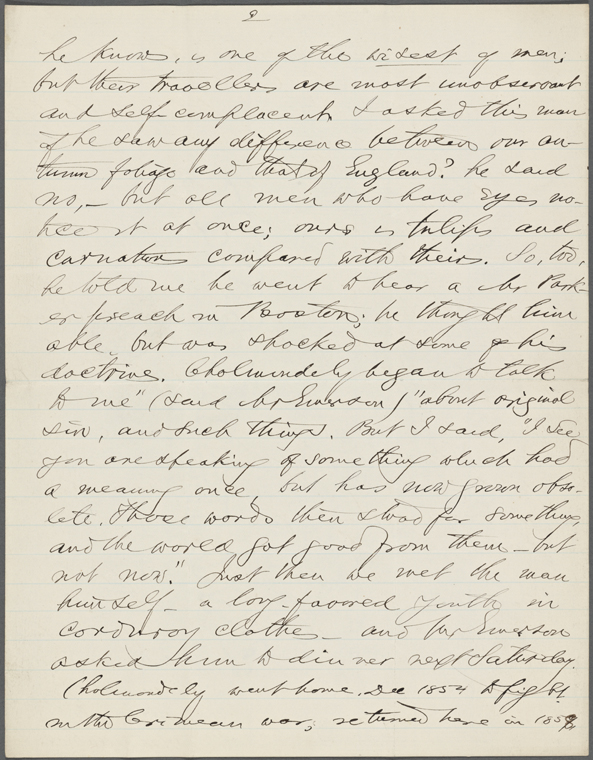 2
he knows, is one of the wisest of men;
but their travellers are most unobservant
and self-complacent. I asked this man
if he saw any difference between our au-
tumn foliage and that of England? he said
no, – but all men who have eyes no-
tice it at once; ours is tulips and
carnations compared with theirs. So, too,
he told me he went to hear a Mr Park-
er preach in Boston; he thought him
able, but was shocked at some of his
doctrine. Cholmondely began to talk
to me" (said Mr Emerson) "about original
sin, and such things. But I said, "I see
you are speaking of something which had
a meaning once, but has now grown obso-
lete. Those words then stood for something,
and the world got good from them – but
not now." Just then we met the man
himself – a long-favored youth, in
corduroy clothes – and Mr Emerson
asked him to dinner next Saturday.
(Cholmondely went home, Dec 1854 to fight
in the Crimean war; returned here in 185